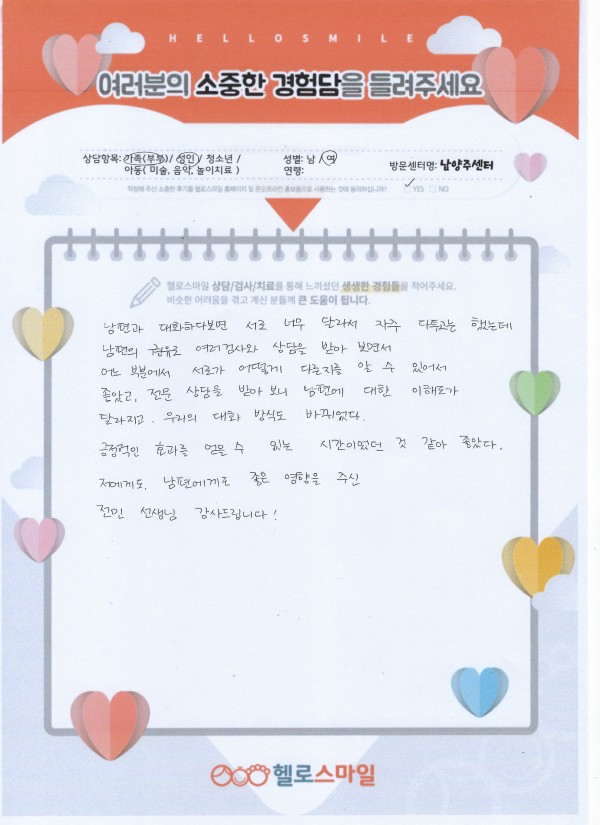 HELLOSMILE
여러분의 소중한 경험담을 들려주세요
상담항목: 가족(부부) / 성인 / 청소년 / 성별: 남 / 여
아동( 미술, 음악, 놀이치료 ) 연령: 방문센터명: 남양주센터
작성해 주신 소중한 후기를 헬로스마일 홈페이지 및 온오프라인 홍보용으로 사용하는 것에 동의하십니까? ✓ YES □ NO
헬로스마일 상담/검사/치료를 통해 느끼셨던 생생한 경험들을 적어주세요.
비슷한 어려움을 겪고 계신 분들께 큰 도움이 됩니다.
남편과 대화하다보면 서로 너무 달라서 자주 다투고는 했는데
남편의 권유로 여러검사와 상담을 받아 보면서
어느 부분에서 서로가 어떻게 다른지를 알 수 있어서
좋았고, 전문 상담을 받아 보니 남편에 대한 이해도가
달라지고. 우리의 대화 방식도 바뀌었다.
긍정적인 효과를 얻을 수 있는 시간이었던 것 같아 좋았다.
저에게도, 남편에게도 좋은 영향을 주신
전민 선생님 감사드립니다!
헬로스마일